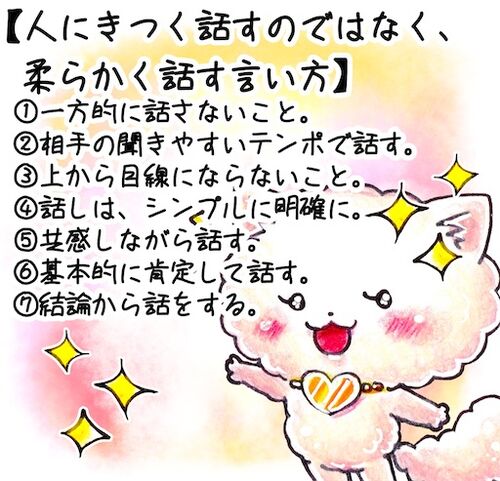 【人にきつく話すのではなく、
柔らかく話す言い方】
①一方的に話さないこと。
②相手の聞きやすいテンポで話す。
③上から目線にならないこと。
④話しは、シンプルに明確に。
⑤共感しながら話す。
⑥基本的に肯定して話す。
⑦結論から話をする。